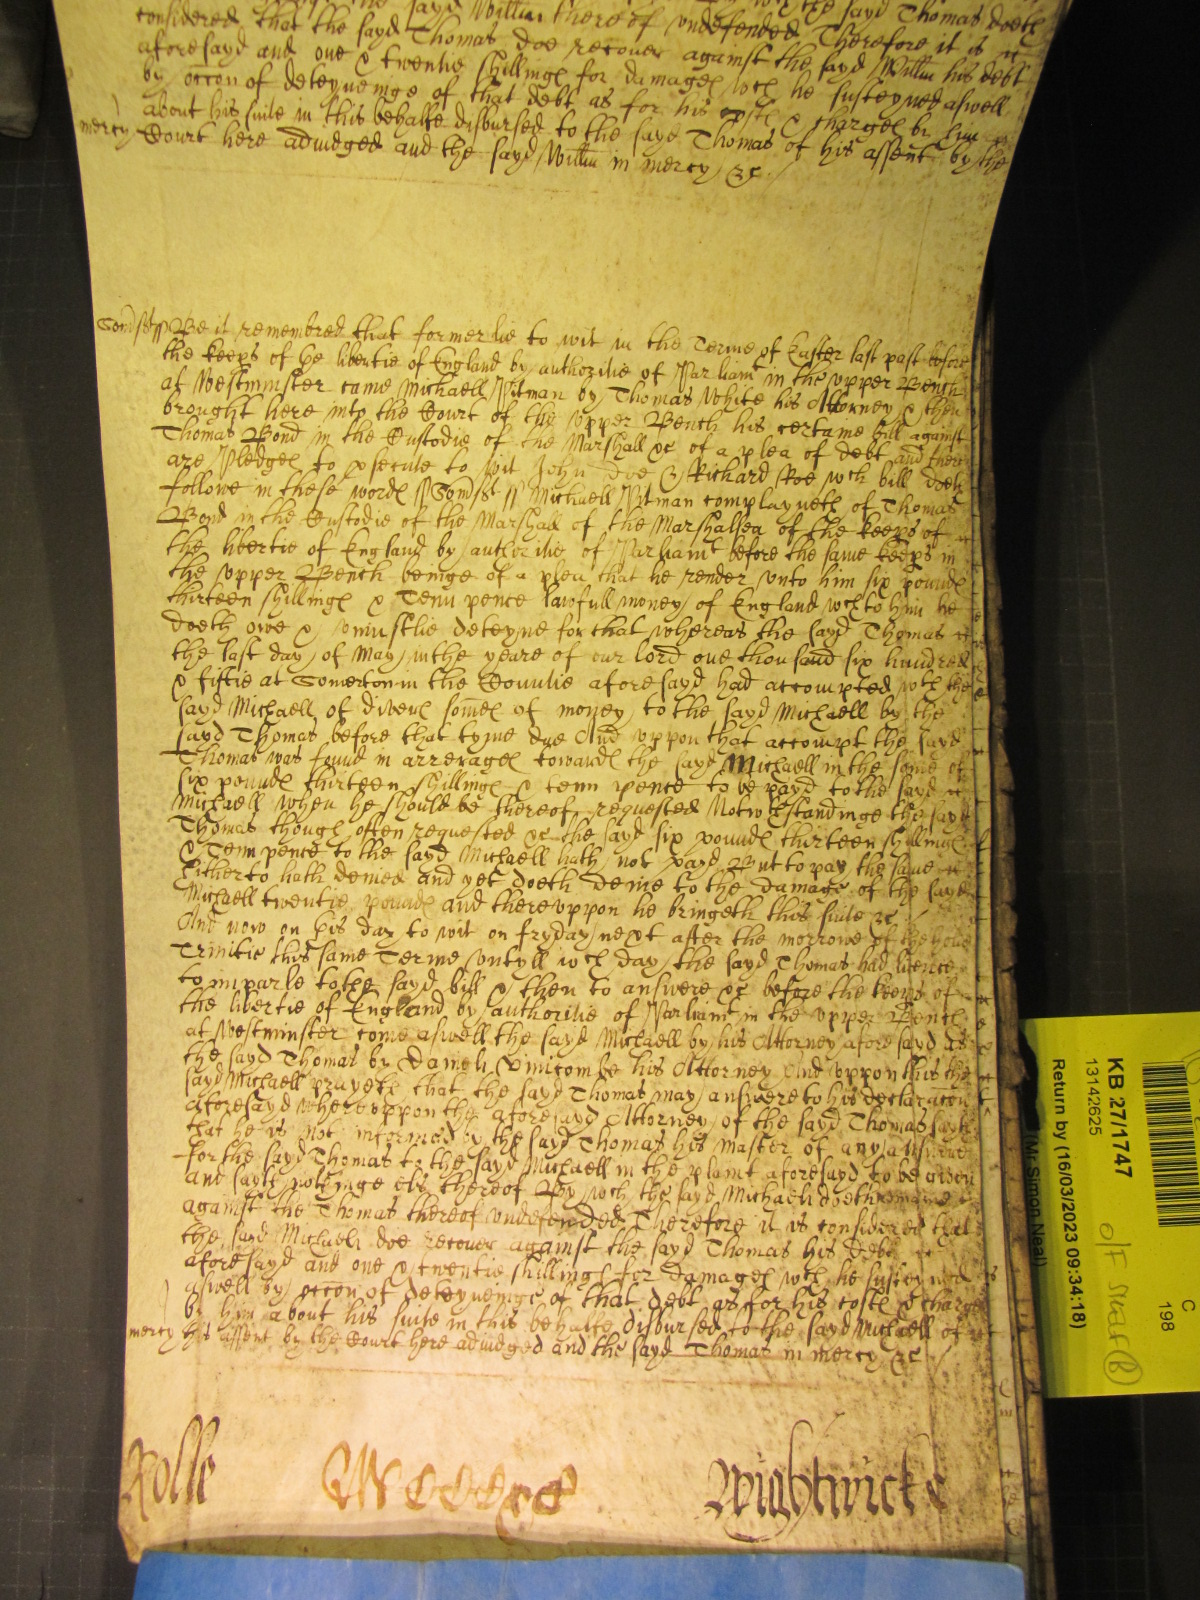 the sayd Willm thereof undefended Therefore it is
considered that the sayd Thomas doe recover against the sayd Willm his debt
aforesayd and one & twentie shillinges for damages wch he susteyned aswell
by occon of deteyneinge of that debt as for his costes & charges by him
about his suite in this behalfe disbursed to the sayd Thomas of his assent by the
mercy Court here adiudged and the sayd Willm in mercy &c
Somst ss Be it remembred that formerlie to wit in the Terme of Easter last past before
the keeps of the libertie of England by authoritie of Parliamt in the upper Bench
at Westminster came Michaell Pitman by Thomas White his Attorney & then
brought here into the Court of the upper Bench his certaine bill against
Thomas Bond in the Custodie of the Marshall &c of a plea of debt and there
are Pledges to psecute to wit John Doe & Richard Roe wch bill doeth
followe in these wordes ss Somst ss Michaell Pitman complayneth of Thomas
Bond in the Custodie of the Marshall of the Marshallsea of the keeps of
the libertie of England by authoritie of Parliamt before the same keeps in
the upper Bench beinge of a plea that he render unto him six poundes
thirteen shillinges & Tenn pence lawfull money of England wch to him he
doeth owe & uniustlie deteyne for that whereas the sayd Thomas
the last day of May in the yeare of our lord one thousand six hundred
& fiftie at Somerton in the Countie aforesayd had accompted wth the
sayd Michaell of divers somes of money to the sayd Michaell by the
sayd Thomas before that tyme due And uppon that accompt the sayd
Thomas was found in arrerages towardes the sayd Michaell in the some of
six poundes thirteen shillinges & tenn pence to be payd to the sayd
Michaell when he should be thereof requested Notwthstandinge the sayd
Thomas though often requested &c the sayd six poundes thirteen shillinges
& Tenn pence to the sayd Michaell hath not payd But to pay the same
hitherto hath denied and yet doeth denie to the damage of the sayd
Michaell twentie poundes and thereuppon he bringeth this suite &c
And now on this day to wit on fryday next after the morrowe of the holie
Trinitie this same Terme untyll wch day the sayd Thomas had licence
to imparle to the sayd bill & then to answere &c before the keeps of
the libertie of England by authoritie of Parliamt in the upper Bench
at Westminster come aswell the sayd Michaell by his Attorney aforesayd as
the sayd Thomas by Daniell his Attorney And uppon this the
sayd Michaell prayeth that the sayd Thomas may answere to his declaracon
aforesayd whereuppon the aforesayd Attorney of the sayd Thomas sayth
that he is not informed by the sayd Thomas his master of any answere
for the sayd Thomas to the sayd Michaell in the plaint aforesayd to be given
and sayth nothinge els thereof By wch the sayd Michaell doeth remaine
against the Thomas thereof undefended Therefore it is considered that
the sayd Michaell doe recover against the sayd Thomas his debt
aforesayd and one & twentie shillinges for damages wch he susteyned
aswell by occon of deteyneinge of that debt as for his costes & charges
by him about his suite in this behalfe disbursed to the sayd Michaell of
mercy his assent by the Court here adiudged and the sayd Thomas in mercy &c
Rolle
Wightwicke
KB 27/1747
13142625
Return by (16/03/2023 09:34:18)
(Mr Simon Neal)
C
198